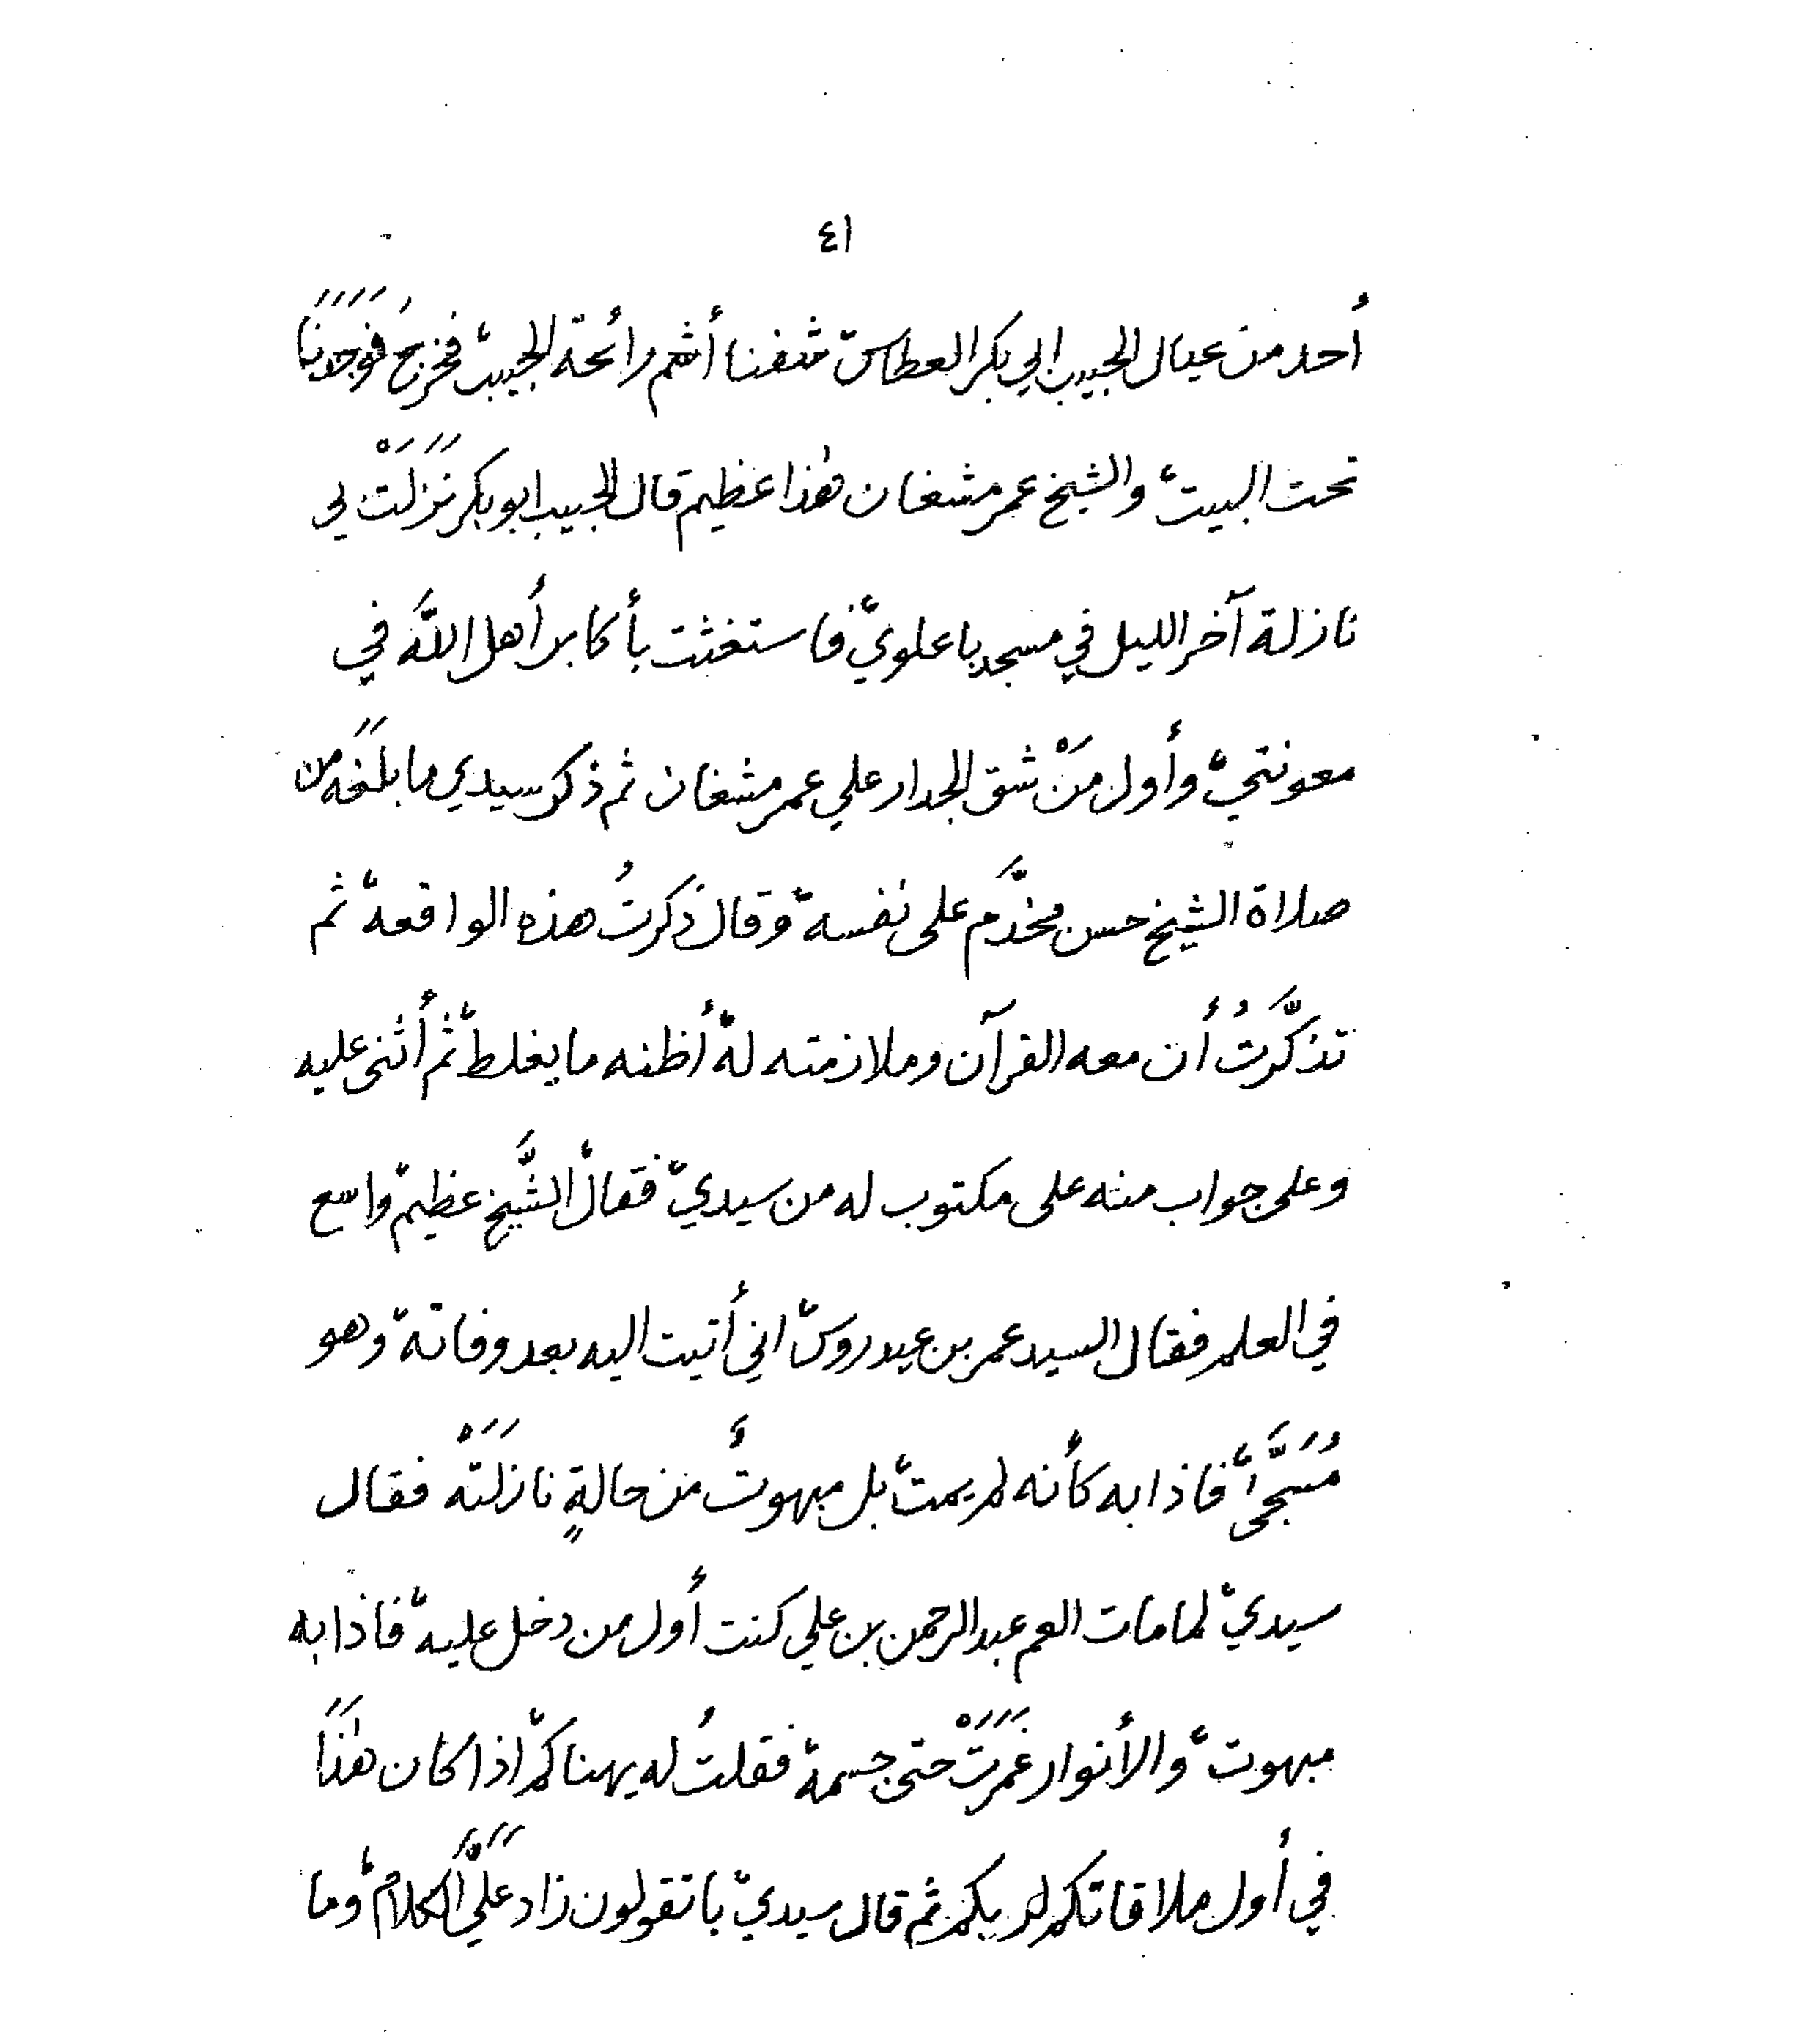 ٤١
أحد من عيال الحبيب ابي بكر العطاس، شفنا أشم رائحة الحبيب، فخرجَ فوَجَدَنَا
تحت البيت، والشيخ عمر مشغان هٰذا عظيم قال الحبيب ابوبكر نَزَلَتْ لي
نازلة آخر الليل في مسجد باعلوي، فاستغثت بأكابر أهل اللَّه في
معونتي، وأول مَنْ شق الجدار علي عمر مشغان ثم ذكر سيدي ما بلَغَه من
صلاة الشيخ حسن مخدَّم على نفسه، وقال ذكرتُ هذه الواقعه، ثم
تذكَّرتُ أن معه القرآن وملازمته له، أظنه ما يغلط، ثم أثنى عليه
وعلى جواب منه على مكتوب له من سيدي، فقال، الشَّيخ عظيم، واسع
في العلم فقال السيد عمر بن عيدروس، اني أتيت اليه بعد وفاته، وهو
مُسَجَّى، فاذا به كأنه لم يمت، بل مبهوتٌ من حالةٍ نازَلَتْه فقال
سيدي، لما مات العم عبدالرحمن بن علي كنت أول من دخل عليه، فاذا به
مبهوت، والأنوار غَمَرَتْ حتى جسمه، فقلتُ له يهناكم، اذا كان هٰذَا
في أول ملاقاتكم لربكم ثم قال سيدي، باتقولون زاد عَلَيَّ الكَلام، وما